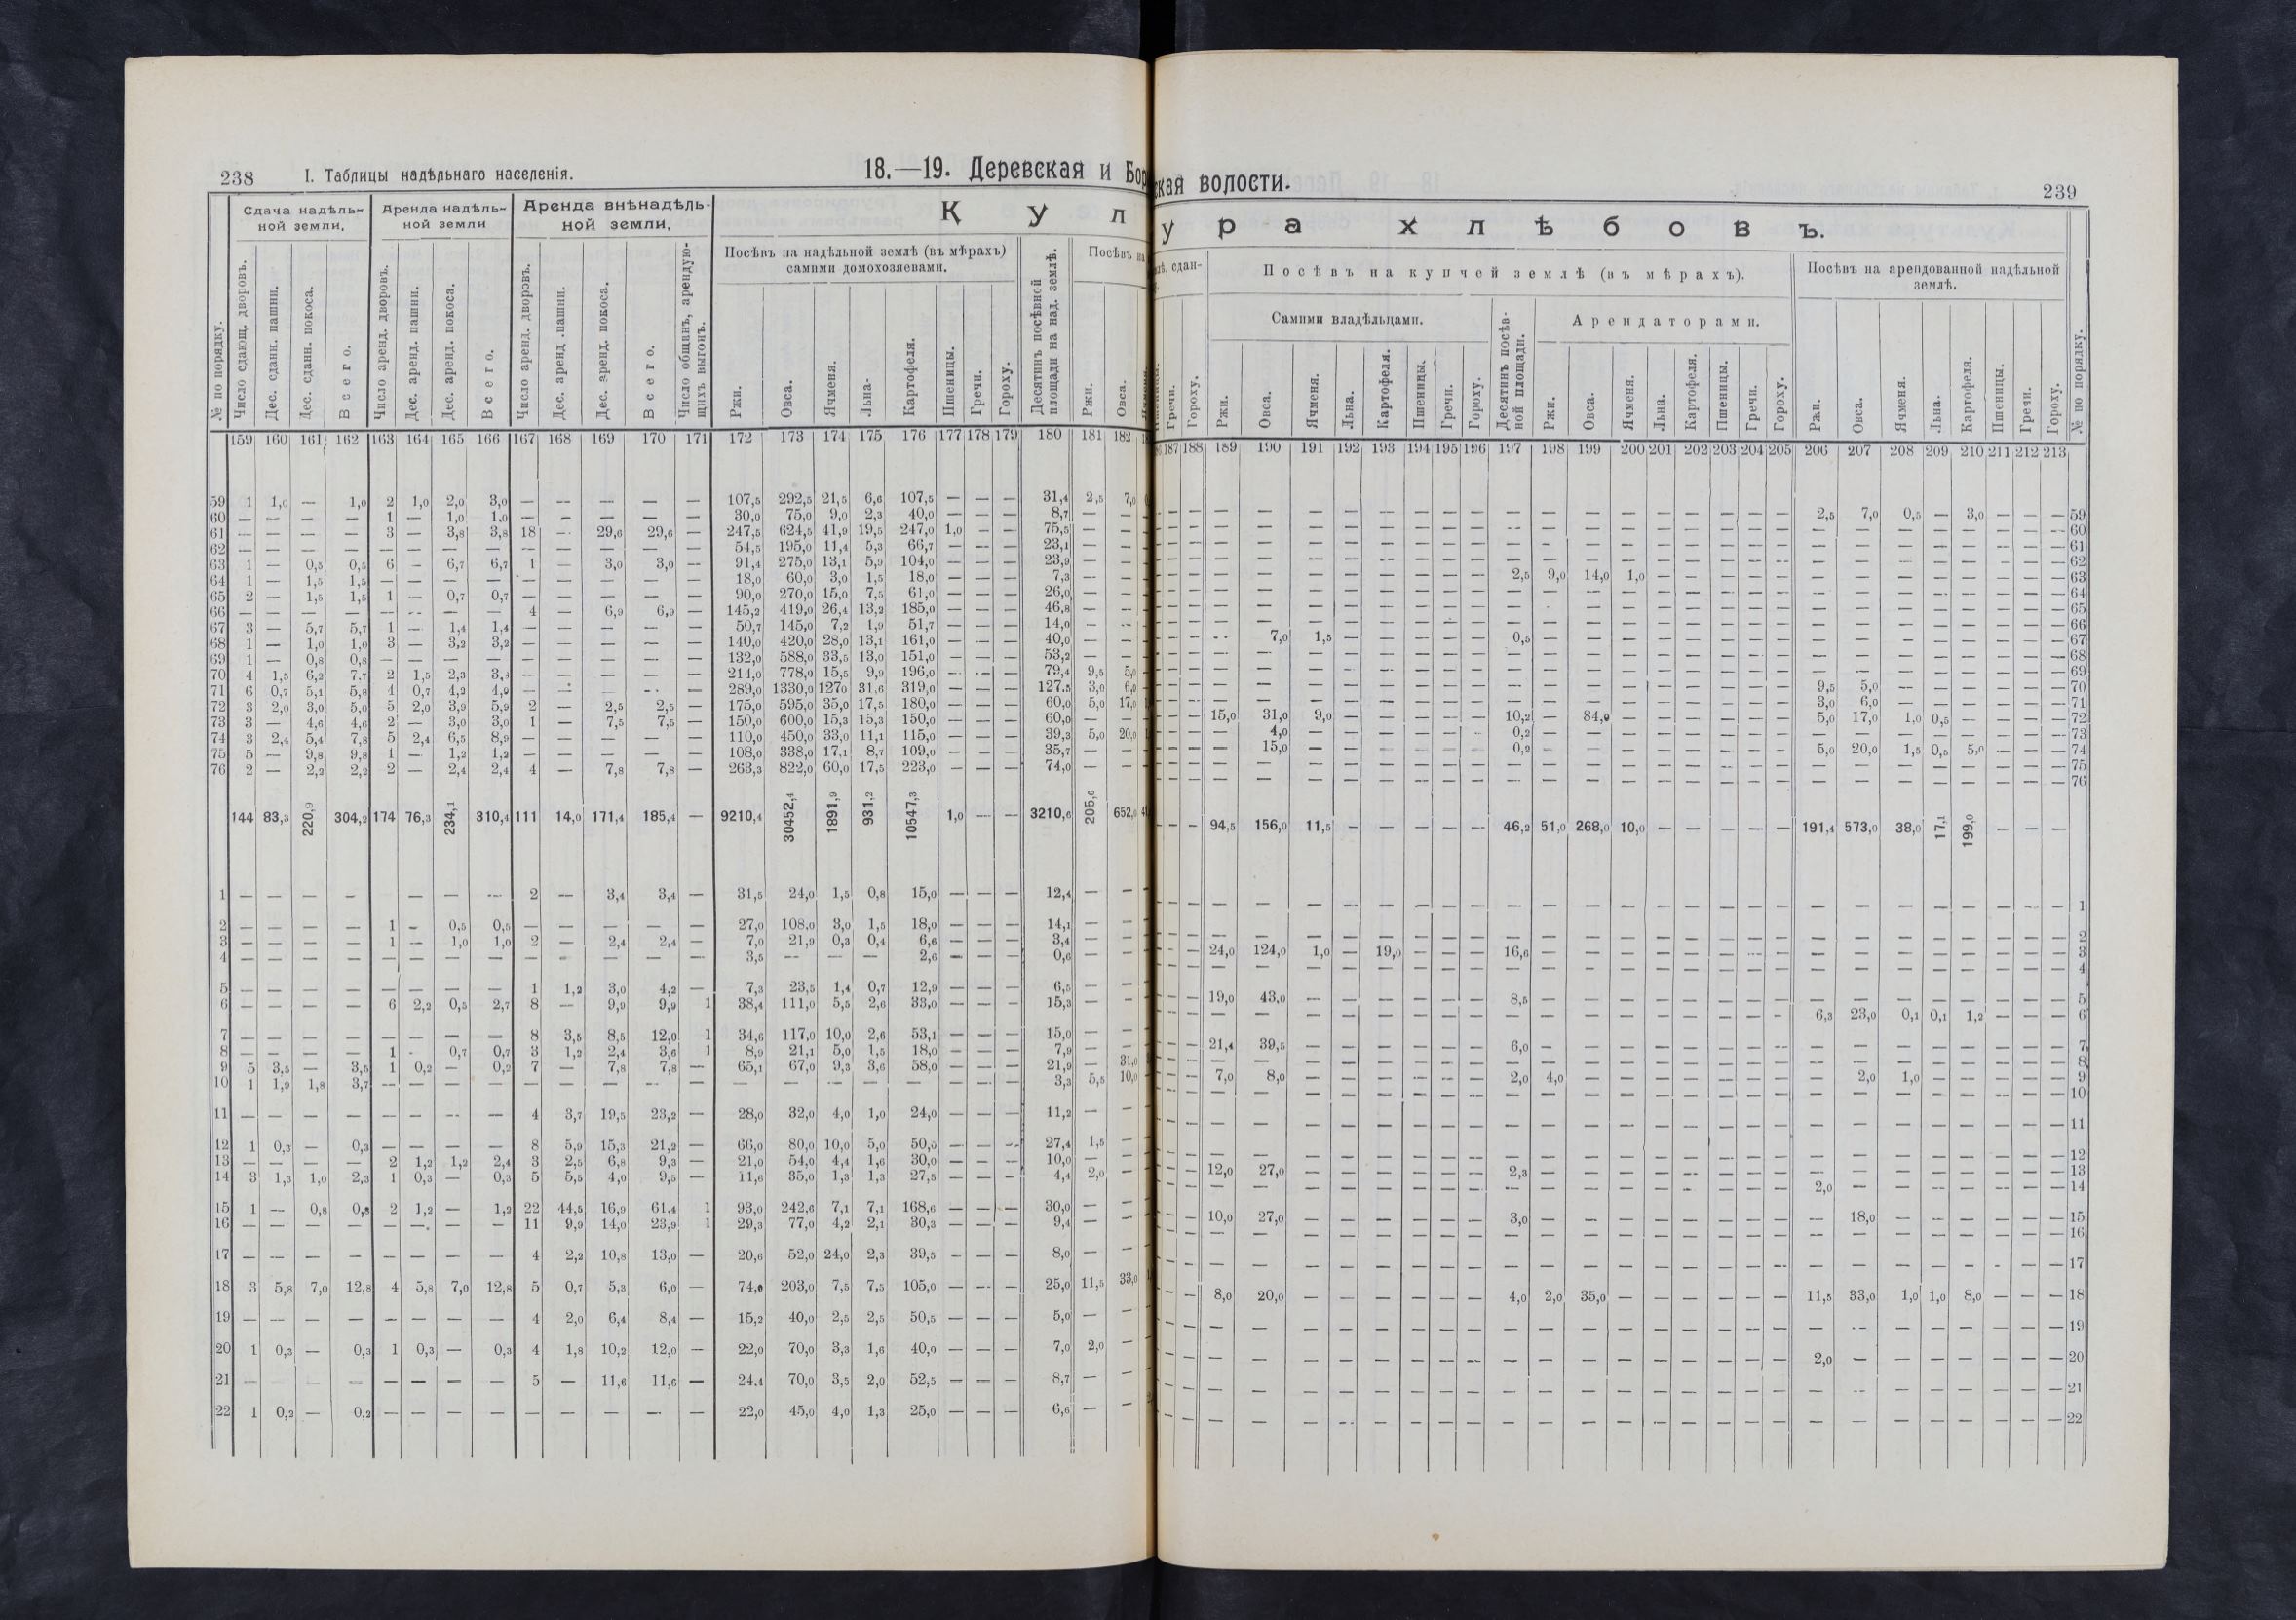 238 I. Таблицы надѣльнаго населенія. 18.—19. Деревская и Бор
Сдача надѣль- Аренда надѣль- Аренда внѣнадѣль- К у л
ной земли. ной земли ной земли.
Посѣвъ на надѣльной землѣ (въ мѣрахъ) Посѣвъ на
самими домохозяевами.
№ по порядку. Число сдающ. дворовъ. Дес. сданн. пашни. Дес. сданн. покоса. Всего. Число аренд. дворовъ. Дес. аренд. пашни. Дес. аренд. покоса. Всего. Число аренд. дворовъ. Дес. аренд. пашни. Дес. аренд. покоса. Всего. Число общинъ, арендую-щихъ выгонъ. Ржи. Овса. Ячменя. Льна- Картофеля. Пшеницы. Гречи. Гороху. Десятинъ посѣвной площади на над. землѣ. Ржи. Овса.
159 160 161 162 163 164 165 166 167 168 169 170 171 172 173 174 175 176 177 178 179 180 181 182
59 1 1,0 — 1,0 2 1,0 2,0 3,0 — — — — — 107,5 292,5 21,5 6,6 107,5 — — — 31,4 2,5 7,0
60 — — — — 1 — 1,0 1,0 — — — — — 30,0 75,0 9,0 2,3 40,0 — — — 8,7 — —
61 — — — — 3 — 3,8 3,8 18 — 29,6 29,6 — 247,5 624,5 41,9 19,5 247,0 1,0 — — 75,5 — —
62 — — — — — — — — — — — — — 54,5 195,0 11,4 5,3 66,7 — — — 23,1 — —
63 1 — 0,5 0,5 6 — 6,7 6,7 1 — 3,0 3,0 — 91,4 275,0 13,1 5,9 104,0 — — — 23,9 — —
64 1 — 1,5 1,5 — — — — — — — — — 18,0 60,0 3,0 1,5 18,0 — — — 7,3 — —
65 2 — 1,5 1,5 1 — 0,7 0,7 — — — — — 90,0 270,0 15,0 7,5 61,0 — — — 26,0 — —
66 — — — — — — — — 4 — 6,9 6,9 — 145,2 419,0 26,4 13,2 185,0 — — — 46,8 — —
67 3 — 5,7 5,7 1 — 1,4 1,4 — — — — — 50,7 145,0 7,2 1,9 51,7 — — — 14,0 — —
68 1 — 1,0 1,0 3 — 3,2 3,2 — — — — — 140,0 420,0 28,0 13,1 161,0 — — — 40,0 — —
69 1 — 0,8 0,8 — — — — — — — — — 132,0 588,0 33,5 13,0 151,0 — — — 53,2 — —
70 4 1,5 6,2 7,7 2 1,5 2,3 3,8 — — — — — 214,0 778,0 15,5 9,9 196,0 — — — 79,4 9,5 5,0
71 6 0,7 5,1 5,8 4 0,7 4,2 4,9 — — — — — 289,0 1330,0 127,0 31,6 319,0 — — — 127,5 3,0 6,0
72 3 2,0 3,0 5,0 5 2,0 3,9 5,9 2 — 2,5 2,5 — 175,0 595,0 35,0 17,5 180,0 — — — 60,0 5,0 17,0
73 3 — 4,6 4,6 2 — 3,0 3,0 1 — 7,5 7,5 — 150,0 600,0 15,3 15,3 150,0 — — — 60,0 — —
74 3 2,4 5,4 7,8 5 2,4 6,5 8,9 — — — — — 110,0 450,0 33,0 11,1 115,0 — — — 39,3 5,0 20,0
75 5 — 9,8 9,8 1 — 1,2 1,2 — — — — — 108,0 338,0 17,1 8,7 109,0 — — — 35,7 — —
76 2 — 2,2 2,2 2 — 2,4 2,4 4 — 7,8 7,8 — 263,3 822,0 60,0 17,5 223,0 — — — 74,0 — —
144 83,3 220,9 304,2 174 76,3 234,1 310,4 111 14,0 171,4 185,4 — 9210,4 30452,4 1891,9 931,2 10547,3 1,0 — — 3210,6 205,6 652,0
1 — — — — — — — 2 — 3,4 3,4 — 31,5 24,0 1,5 0,8 15,0 — — — 12,4 — —
2 — — — — 1 — 0,5 0,5 — — — — — 27,0 108,0 3,0 1,5 18,0 — — — 14,1 — —
3 — — — — 1 — 1,0 1,0 2 — 2,4 2,4 — 7,0 21,9 0,3 0,4 6,6 — — — 3,4 — —
4 — — — — — — — — — — — — — 3,5 — — — 2,6 — — — 0,6 — —
5 — — — — — — — — 1 1,2 3,0 4,2 — 7,3 23,5 1,4 0,7 12,9 — — — 6,5 — —
6 — — — — 6 2,2 0,5 2,7 8 — 9,9 9,9 1 38,4 111,0 5,5 2,6 33,0 — — — 15,3 — —
7 — — — — — — — — 8 3,5 8,5 12,0 1 34,6 117,0 10,0 2,6 53,1 — — — 15,0 — —
8 — — — — 1 - 0,7 0,7 3 1,2 2,4 3,6 1 8,9 21,1 5,0 1,5 18,0 — — — 7,9 — —
9 5 3,5 — 3,5 1 0,2 — 0,2 7 — 7,8 7,8 — 65,1 67,0 9,3 3,6 58,0 — — — 21,9 — 31,0
10 1 1,9 1,8 3,7 — — — — — — — — — — — — — — — — — 3,3 5,5 10,0
11 — — — — — — — — 4 3,7 19,5 23,2 — 28,0 32,0 4,0 1,0 24,0 — — — 11,2 — —
12 1 0,3 — 0,3 — — — — 8 5,9 15,3 21,2 — 66,0 80,0 10,0 5,0 50,0 — — — 27,4 1,5 —
13 — — — — 2 1,2 1,2 2,4 3 2,5 6,8 9,3 — 21,0 54,0 4,4 1,6 30,0 — — — 10,0 — —
14 3 1,3 1,0 2,3 1 0,3 — 0,3 5 5,5 4,0 9,5 — 11,6 35,0 1,3 1,3 27,5 — — — 4,4 2,0 —
15 1 — 0,8 0,8 2 1,2 — 1,2 22 44,5 16,9 61,4 1 93,0 242,6 7,1 7,1 168,6 — — — 30,0 — —
16 — — — — — — — — 11 9,9 14,0 23,9 1 29,3 77,0 4,2 2,1 30,3 — — — 9,4 — —
17 — — — — — — — — 4 2,2 10,8 13,0 — 20,6 52,0 24,0 2,3 39,5 — — — 8,0 — —
18 3 5,8 7,0 12,8 4 5,8 7,0 12,8 5 0,7 5,3 6,0 — 74,0 203,0 7,5 7,5 105,0 — — — 25,0 11,5 33,0
19 — — — — — — — — 4 2,0 6,4 8,4 — 15,2 40,0 2,5 2,5 50,5 — — — 5,0 — —
20 1 0,3 — 0,3 1 0,3 — 0,3 4 1,8 10,2 12,0 — 22,0 70,0 3,3 1,6 40,0 — — — 7,0 2,0 —
21 — — — — — — — — 5 — 11,6 11,6 — 24,4 70,0 3,5 2,0 52,5 — — — 8,7 — —
22 1 0,2 — 0,2 — — — — — — — — — 22,0 45,0 4,0 1,3 25,0 — — — 6,6 — —
ская волости. 239
у р а х л ѣ б о в ъ.
лѣ, сдан- Посѣвъ на купчей землѣ (въ мѣрахъ). Посѣвъ на арендованной надѣльной
землѣ.
Самими владѣльцами. Арендаторами.
Гречи. Гороху. Ржи. Овса. Ячменя. Льна. Картофеля. Пшеницы. Гречи. Гороху. Десятинъ посѣв-ной площади. Ржи. Овса. Ячменя. Льна. Картофеля. Пшеницы. Гречи. Гороху. Ржи. Овса. Ячменя. Льна. Картофеля. Пшеницы. Гречи. Гороху. № по порядку.
187 188 189 190 191 192 193 194 195 196 197 198 199 200 201 202 203 204 205 206 207 208 209 210 211 212 213
— — — — — — — — — — — — — — — — — — — 2,5 7,0 0,5 — 3,0 — — — 59
— — — — — — — — — — — — — — — — — — — — — — — — — — — 60
— — — — — — — — — — — — — — — — — — — — — — — — — — — 61
— — — — — — — — — — — — — — — — — — — — — — — — — — — 62
— — — — — — — — — — 2,5 9,0 14,0 1,0 — — — — — — — — — — — — — 63
— — — — — — — — — — — — — — — — — — — — — — — — — — — 64
— — — — — — — — — — — — — — — — — — — — — — — — — — — 65
— — — — — — — — — — — — — — — — — — — — — — — — — — — 66
— — — 7,0 1,5 — — — — — 0,5 — — — — — — — — — — — — — — — — 67
— — — — — — — — — — — — — — — — — — — — — — — — — — — 68
— — — — — — — — — — — — — — — — — — — — — — — — — — — 69
— — — — — — — — — — — — — — — — — — — 9,5 5,0 — — — — — — 70
— — — — — — — — — — — — — — — — — — — 3,0 6,0 — — — — — — 71
— — 15,0 31,0 9,0 — — — — — 10,2 — 84,0 — — — — — — 5,0 17,0 1,0 0,5 — — — — 72
— — — 4,0 — — — — — — 0,2 — — — — — — — — — — — — — — — — 73
— — — 15,0 — — — — — — 0,2 — — — — — — — — 5,0 20,0 1,5 0,5 5,0 — — — 74
— — — — — — — — — — — — — — — — — — — — — — — — — — — 75
— — — — — — — — — — — — — — — — — — — — — — — — — — — 76
— — 94,5 156,0 11,5 — — — — — 46,2 51,0 268,0 10,0 — — — — — 191,4 573,0 38,0 17,1 199,0 — — —
— — — — — — — — — — — — — — — — — — — — — — — — — — — 1
— — — — — — — — — — — — — — — — — — — — — — — — — — — 2
— — 24,0 124,0 1,0 — 19,0 — — — 16,6 — — — — — — — — — — — — — — — — 3
— — — — — — — — — — — — — — — — — — — — — — — — — — — 4
— — 19,0 43,0 — — — — — — 8,5 — — — — — — — — — — — — — — — — 5
— — — — — — — — — — — — — — — — — — — 6,3 23,0 0,1 0,1 1,2 — — — 6
— — 21,4 39,5 — — — — — — 6,0 — — — — — — — — — — — — — — — — 7
— — — — — — — — — — — — — — — — — — — — — — — — — — — 8
— — 7,0 8,0 — — — — — — 2,0 4,0 — — — — — — — — 2,0 1,0 — — — — — 9
— — — — — — — — — — — — — — — — — — — — — — — — — — — 10
— — — — — — — — — — — — — — — — — — — — — — — — — — — 11
— — — — — — — — — — — — — — — — — — — — — — — — — — — 12
— — 12,0 27,0 — — — — — — 2,3 — — — — — — — — — — — — — — — — 13
— — — — — — — — — — — — — — — — — — — 2,0 — — — — — — — 14
— — 10,0 27,0 — — — — — — 3,0 — — — — — — — — — 18,0 — — — — — — 15
— — — — — — — — — — — — — — — — — — — — — — — — — — — 16
— — — — — — — — — — — — — — — — — — — — — — — — — — — 17
— — 8,0 20,0 — — — — — — 4,0 2,0 35,0 — — — — — — 11,5 33,0 1,0 1,0 8,0 — — — 18
— — — — — — — — — — — — — — — — — — — — — — — — — — — 19
— — — — — — — — — — — — — — — — — — — 2,0 — — — — — — — 20
— — — — — — — — — — — — — — — — — — — — — — — — — — — 21
— — — — — — — — — — — — — — — — — — — — — — — — — — — 22